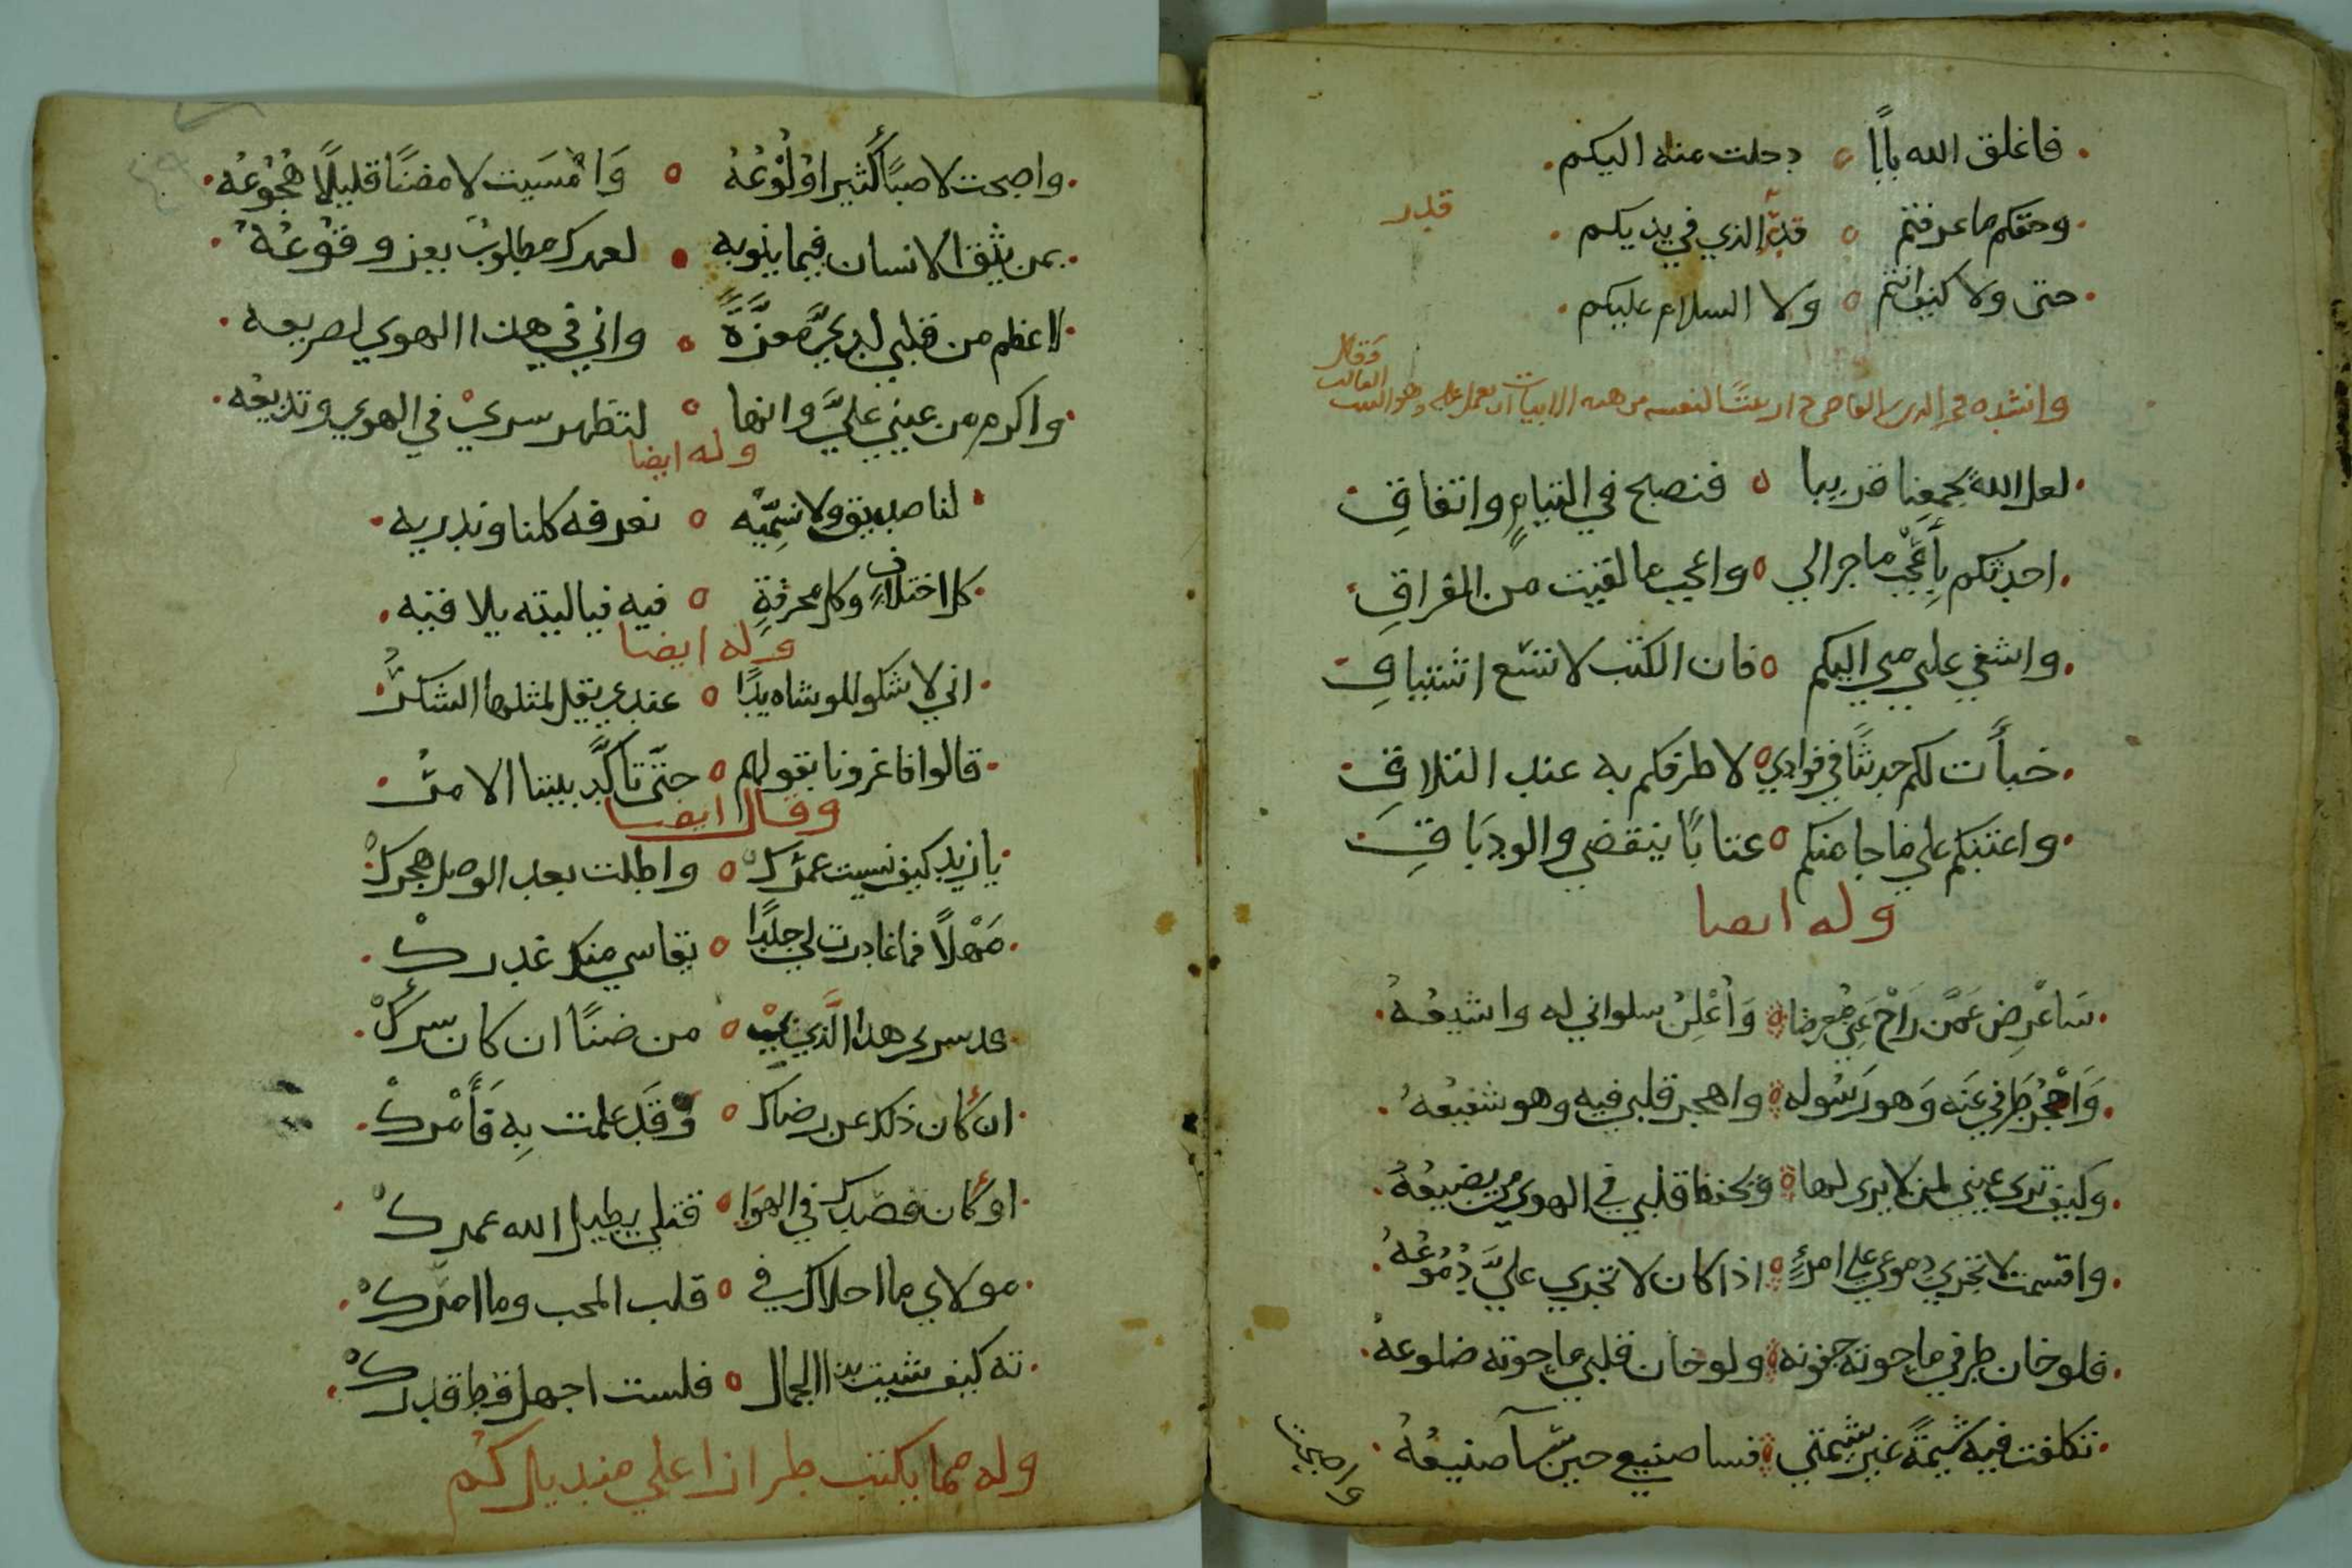 فاغلق الله بابا دخلت منه اليكم
وحقكم ما عرفتم قدر الذي في يديكم
قدر
حتى ولا كيف انتم ولا السلام عليكم
وانشده فخر الدين القاضي لنفسه من هذه الابيات ان يعمل عليه وهو البيت
فقال
لعل الله يجمعنا قريبا فنصبح في التيام واتفاق
احدثكم بأعجب ما جرا لي واعجب ما لقيت من الفراق
واشفي غلتي مني اليكم فان الكتب لا تسع اشتياقي
خبأت لكم حديثا في فوادي لاطرفكم به عند التلاقي
واعتبكم على ما جا منكم عتابا ينقضي والود باقي
وله ايضا
سَاعْرِض عَمَّن رَاحَ عَنِّي مُعرِضا وَأعْلِنُ سلواني له واشيعُهُ
وَاحْجُرُ طَرفي عَنَه وَهو رَسُوله واهجر قلبي فيه وهو شفيعُهُ
وكيف ترى عيني لمن لا يرى لها ويحفظ قلبي في الهوى من يضيعُهُ
واقسمت لا تجري دموعي على امرئٍ اذا كان لا تجري عليَّ دُمُوعُهُ
فلو خان طرفي ما حوته جفونه ولو خان قلبي ما حوته ضلوعه
تكلفت فيه شيمةً غير شيمتي فسا صنيعي حين سآ صنيعُهُ
واصبحت
واصبحت لا صبًا كثيرا وُلُوْعُهُ وَامْسَيت لا مضنًا قليلًا هُجُوعُه
بمن يثق الانسان فيما ينوبه لعمرك مطلوبٌ يعز وقوْعُهُ
لاعظم من قلبي لديَّ معزَّةً واني في هذا الهوي لصريعه
واكرم من عيني عليَّ وانها لتظهر سري في الهوي وتذيعُه
وله ايضا
لنا صديق ولا نسمِّيه نعرفه كلنا وندريه
كل اختلافٍ وكل مخرقةٍ فيه فيا ليته بلا فيه
وله ايضا
اني لاشكو للوشاه يدًا عندي يقل لمثلها الشكرُ
قالوا فاغرونا بقولهم حتّى تأكَّد بيننا الامرُ
وقال ايضا
يا زيد كيف نسيت عمْركْ واطلت بعد الوصل هجركْ
مَهْلًا فما غادرت لي جلدًا يقاسي منك غدركْ
قد سرني هذا الَّذي بيْ من ضنًا ان كان سركْ
ان كان ذلك عن رضاك وقَد علمت بِه فَأَمْركْ
او كان قصدك في الهوَا قتلي يطيل الله عمركْ
مولاي ما احلاك في قلب المحب وما امرّكْ
ته كيف شيت بذا الجمال فلست اجهل قط قدركْ
وله مما يكتب طرازا على منديل كُم